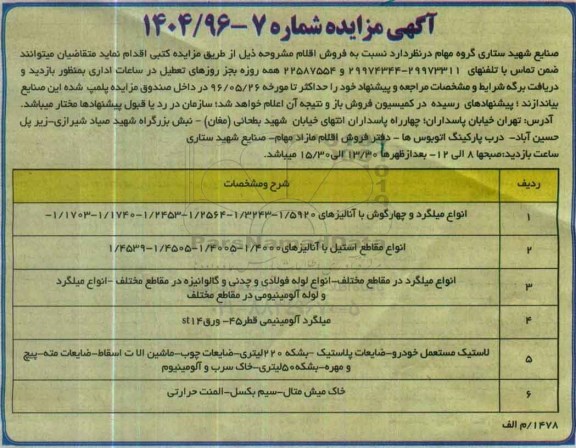 آگهی مزایده شماره ۷-۱۴۰۴/۹۶
صنایع شهید ستاری گروه مهام درنظردارد نسبت به فروش اقلام مشروحه ذیل از طریق مزایده کتبی اقدام نماید متقاضیان میتوانند
ضمن تماس با تلفنهای ۲۹۹۷۳۳۱۱-۲۹۹۷۴۳۴۴ و ۲۲۵۸۷۵۵۴ همه روزه بجز روزهای تعطیل در ساعات اداری بمنظور بازدید و
دریافت برگه شرایط و مشخصات مراجعه و پیشنهاد خود را حداکثر تا مورخه ۹۶/۰۵/۲۶ در داخل صندوق مزایده پلمپ شده این صنایع
بیاندازند؛ پیشنهادهای رسیده در کمیسیون فروش باز و نتیجه آن اعلام خواهد شد؛ سازمان در رد یا قبول پیشنهادها مختار میباشد.
آدرس: تهران خیابان پاسداران؛ چهارراه پاسداران انتهای خیابان شهید بطحائی (مغان) - نبش بزرگراه شهید صیاد شیرازی-زیر پل
حسین آباد- درب پارکینگ اتوبوس ها - دفتر فروش اقلام مازاد مهام- صنایع شهید ستاری
ساعت بازدید:صبحها ۸ الی ۱۲- بعدازظهرها ۱۳/۳۰ الی ۱۵/۳۰ میباشد.
ردیف شرح ومشخصات
۱ انواع میلگرد و چهارگوش با آنالیزهای ۱/۵۹۲۰-۱/۳۲۴۳-۱/۲۵۶۴-۱/۲۴۵۳-۱/۱۷۴۰-۱/۱۷۰۳-
۲ انواع مقاطع استیل با آنالیزهای۱/۴۰۰۰-۱/۴۰۰۵-۱/۴۵۰۵-۱/۴۵۳۹
۳ انواع میلگرد در مقاطع مختلف-انواع لوله فولادی و چدنی و گالوانیزه در مقاطع مختلف -انواع میلگرد
و لوله آلومینیومی در مقاطع مختلف
۴ میلگرد آلومینیمی قطر۴۵- ورق st۱۴
۵ لاستیک مستعمل خودرو-ضایعات پلاستیک -بشکه ۲۲۰لیتری-ضایعات چوب-ماشین الا ت اسقاط-ضایعات مته-پیچ
و مهره-بشکه۵۰لیتری-خاک سرب و آلومینیوم
۶ خاک میش متال-سیم بکسل-المنت حرارتی
۱۴۷۸/م الف